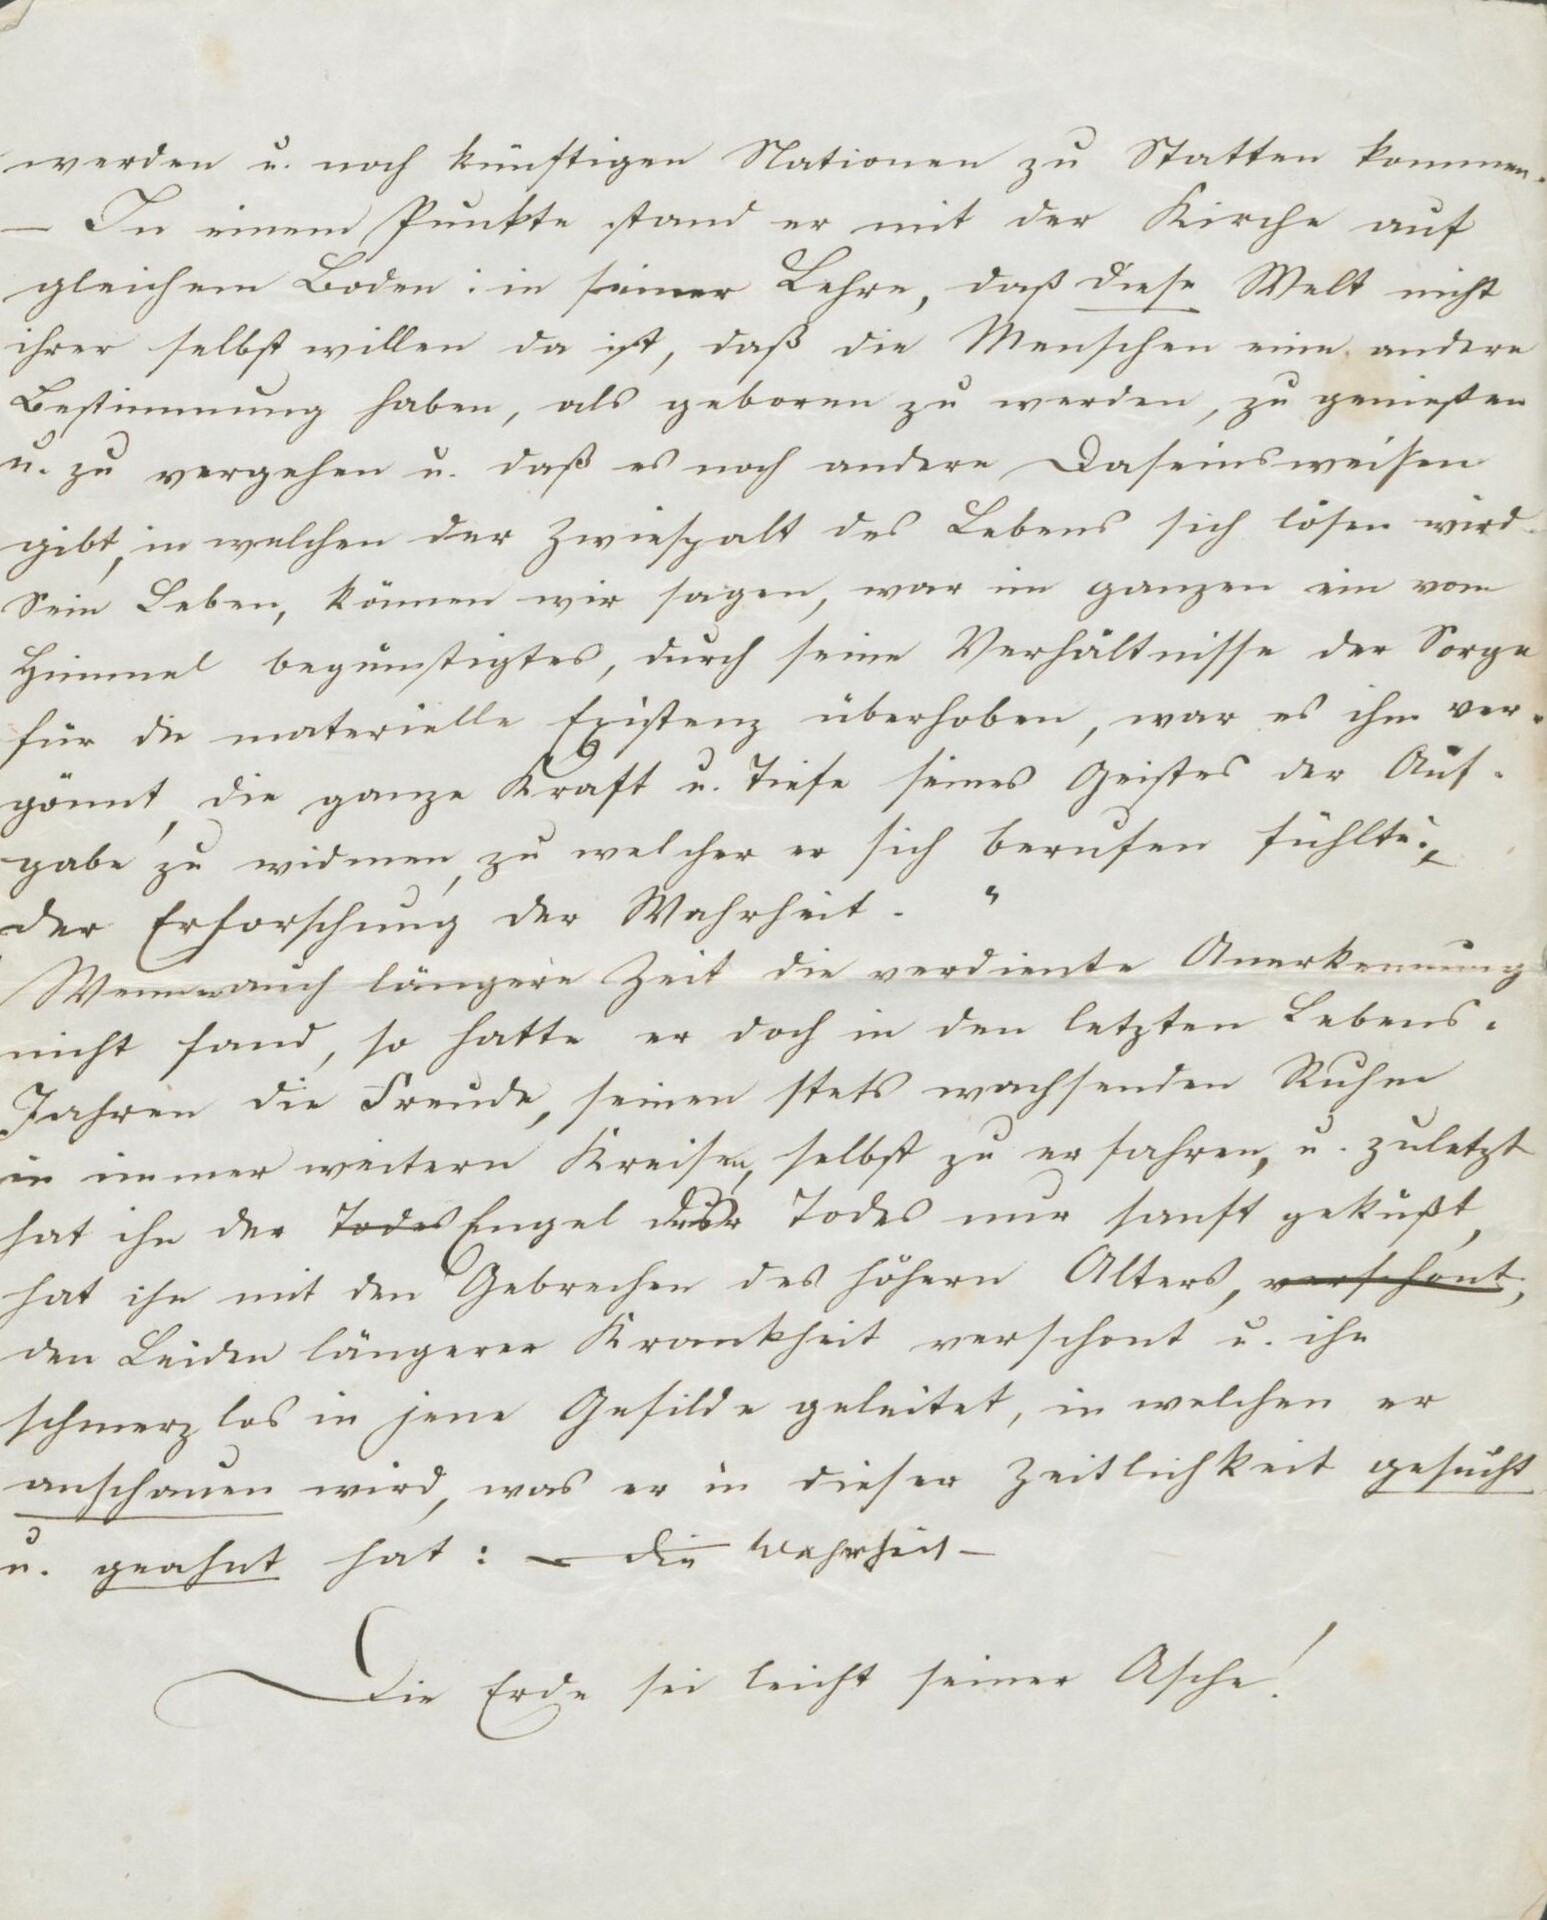 werden u. noch künftigen Nationen zu Statten kommen.
— In einem Punkte stand er mit der Kirche auf
gleichem Boden: in seiner Lehre, daß diese Welt nicht
ihrer selbst willen da ist, daß die Menschen eine andere
Bestimmung haben, als geboren zu werden, zu genießen
u. zu vergehen u. daß es noch andere Daseinsweisen
gibt, in welchen der Zwiespalt des Lebens sich lösen wird.
Sein Leben, können wir sagen, war im ganzen ein vom
Himmel begünstigtes, durch seine Verhältnisse der Sorge
für die materielle Existenz überhoben, war es ihm ver-
gönnt, die ganze Kraft u. Tiefe seines Geistes der Auf-
gabe zu widmen, zu welcher er sich berufen fühlte:,
der Erforschung der Wahrheit. "
Wenn er auch längere Zeit die verdiente Anerkennung
nicht fand, so hatte er doch in den letzten Lebens-
Jahren die Freude, seinen stets wachsenden Ruhm
in immer weitern Kreisen, selbst zu erfahren, u. zuletzt
hat ihn der Todes Engel des Todes nur sanft geküßt,
hat ihn mit den Gebrechen des höhern Alters, verschont,
den Leiden längerer Krankheit verschont u. ihn
schmerzlos in jene Gefilde geleitet, in welchen er
anschauen wird, was er in dieser Zeitlichkeit gesucht
u. geahnt hat: — die Wahrheit —
Die Erde sei leicht seiner Asche!